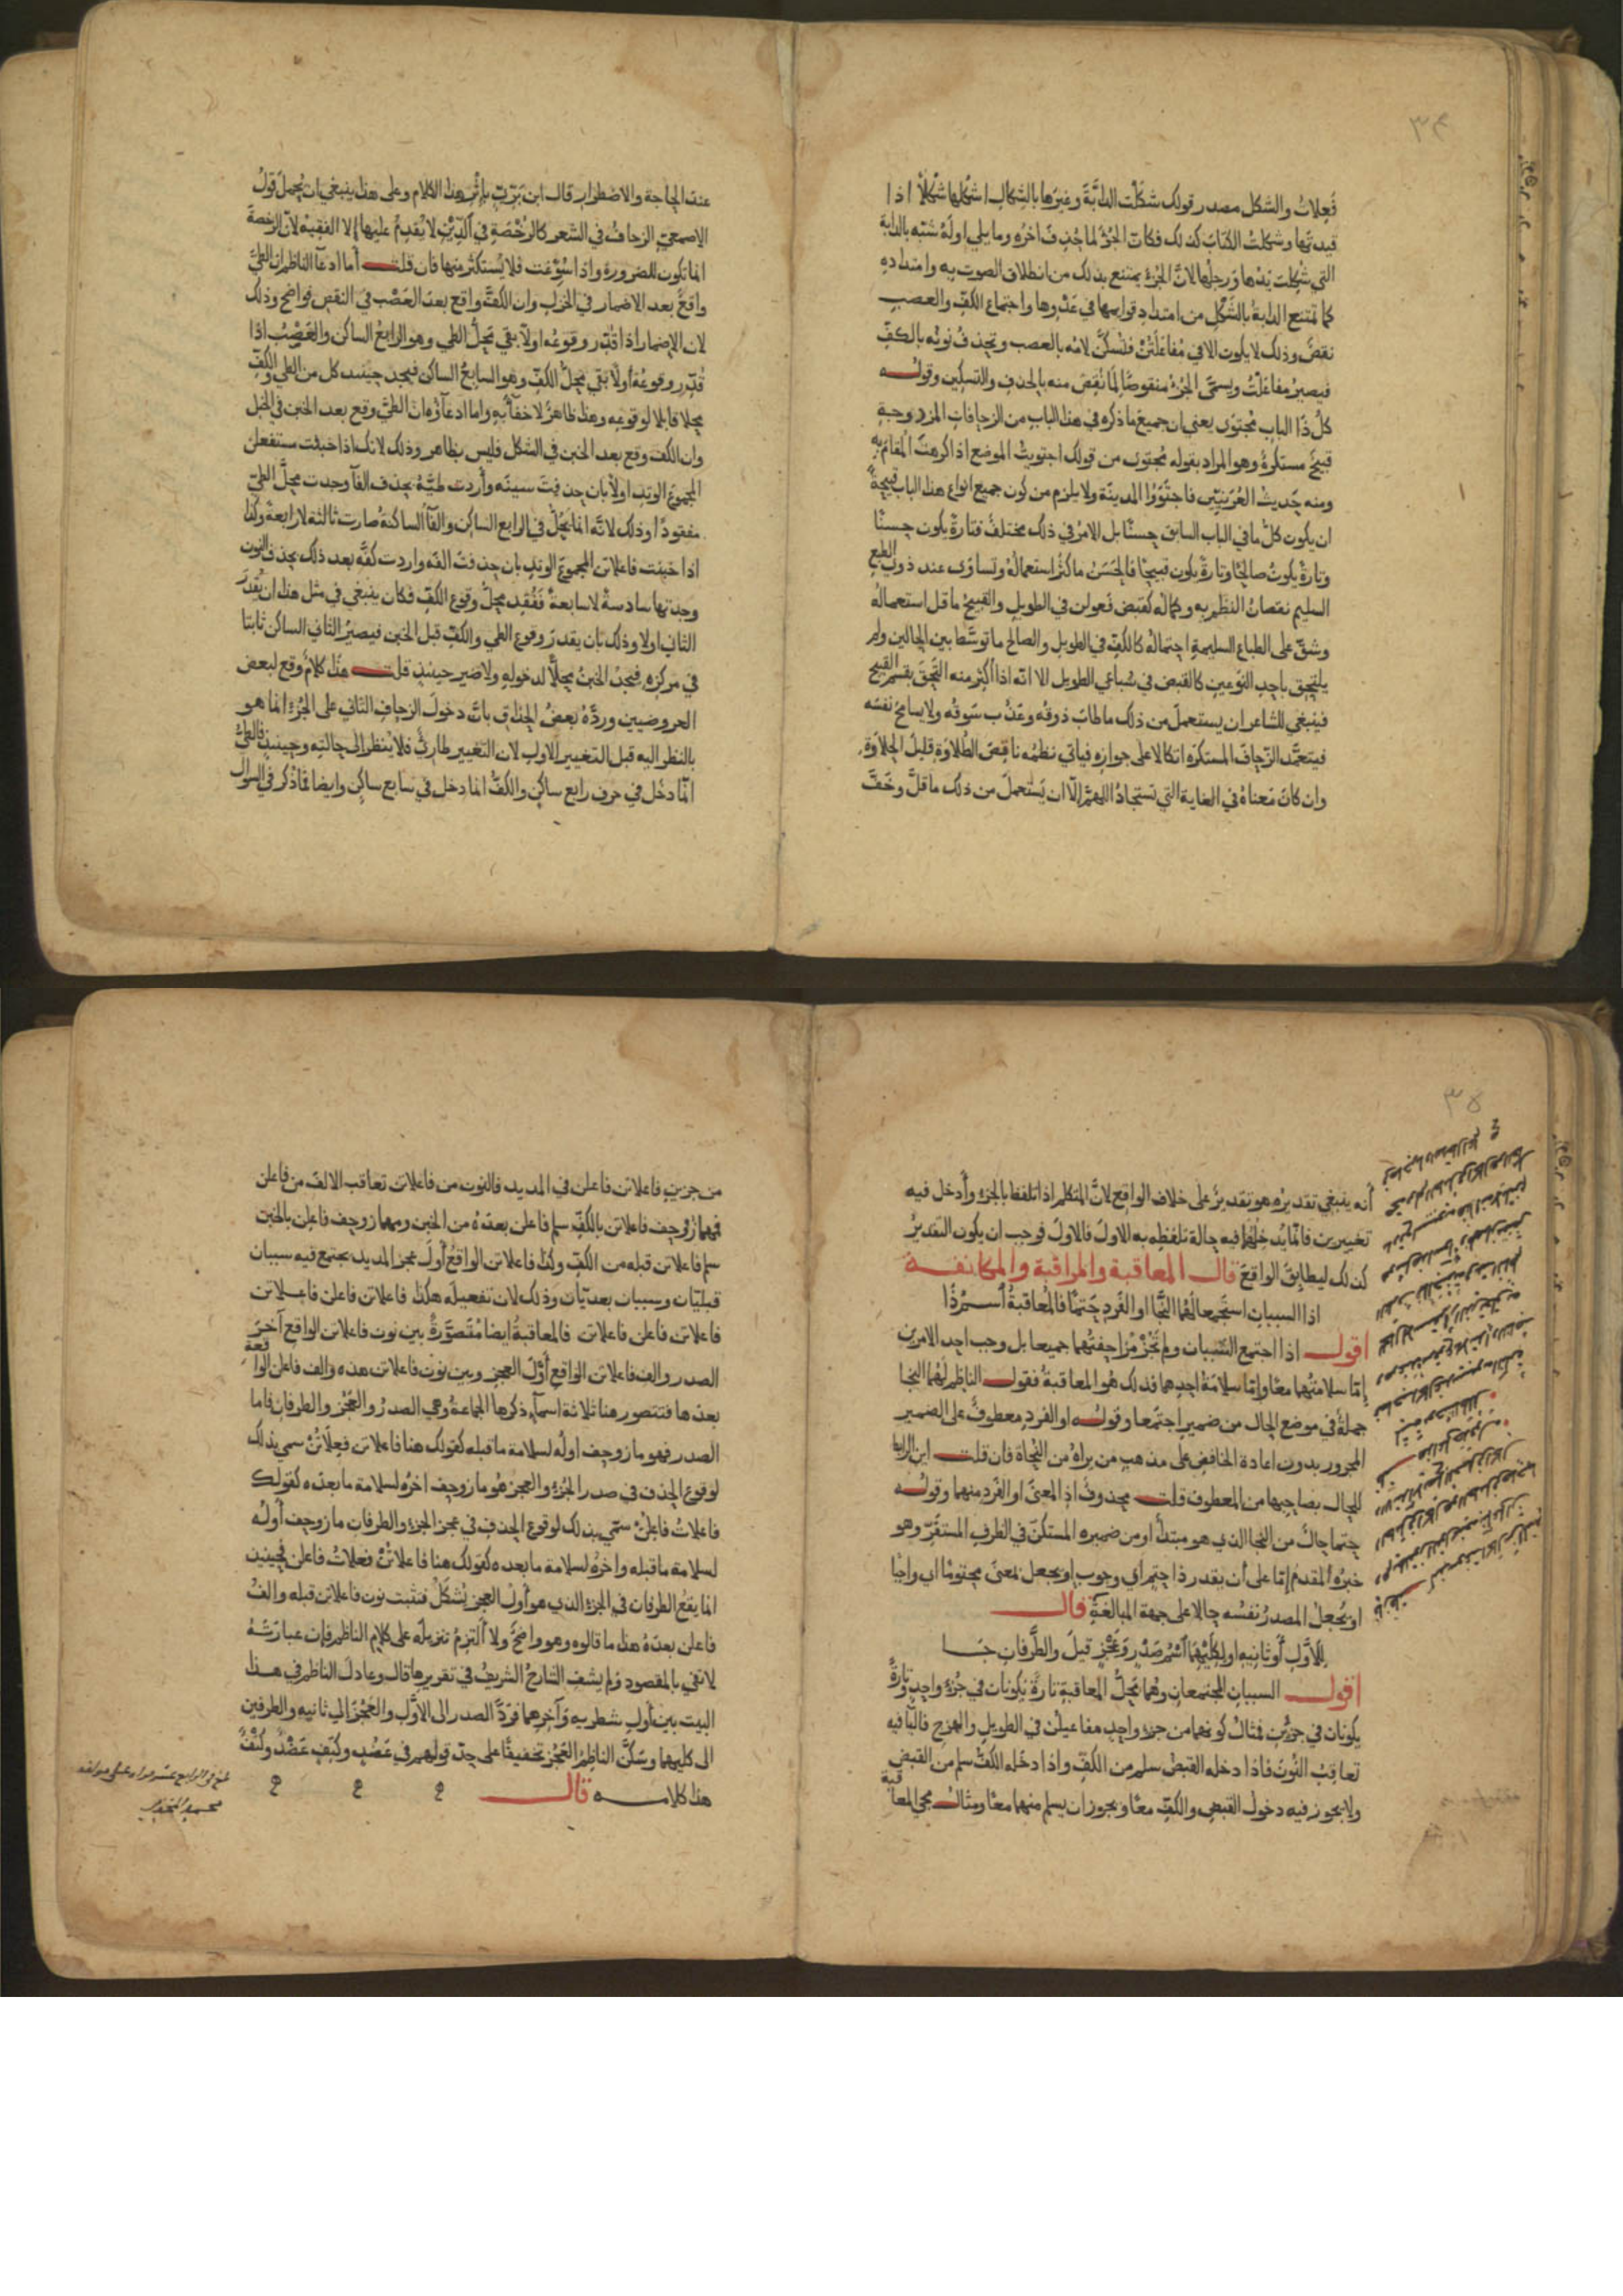 ٣٤
فَعِلاتُ والشكل مصدر قولك شكلت الدابَّة وغيرها بالشكال اشكلها شكلًا اذا
قيدتها وشكلت الكتاب كذلك فكانّ الجزؤ لما حُذِف آخره وما يلي اوله شبّه بالدابة
التي شكلت يدها ورجلها لانّ الجزؤ يمتنع بذلك من انطلاق الصوت به وامتداده
كما تمتنع الدابة بالشكل من امتداد قوايمها في عَدْوِها واجتماع الكف والعصب
نقصٌ وذلك لا يكون الا في مُفَاعَلَتُنْ فتسكّن لامه بالعصب وتحذف نونه بالكفّ
فيصير مفاعلْتُ ويسمّى الجزؤ منقوصًا لِمَا نقص منه بالحذف والتسكين وقوله
كلُّ ذا الباب مُجتوَى يعني ان جميع ما ذكره في هذا الباب من الزحافات المزدوجة
قبيحٌ مستكرهٌ وهو المراد بقوله مُجتوى من قولك اجتويتُ الموضع اذا كرهت المقام به
ومنه حَديث العُرَنِيّين فاجتَوَوُا المدينة ولا يلزم من كون جميع انواع هذا الباب قبيحةً
ان يكون كلّ ما في الباب السابق حسنًا بل الامر في ذلك مختلف فتارةً يكون حسنًا
وتارةً يكونُ صالحًا وتارةً يكون قبيحًا فالحَسَنُ ما كثُر استعمالُه وتساوَى عند ذوي الطبع
السليم نقصانُ النظم به وكماله كقبض فعولن في الطويل والقبيحُ ما قل استعماله
وشقّ على الطباع السليمة احتماله كالكفّ في الطويل والصالح ما توسّط بين الحالين ولم
يلتحق باحد النوعين كالقبض في سُباعي الطويل الا انّه اذا اكثر منه التَحَق بقسم القبيح
فينبغي للشاعر ان يستعمل من ذلك ما طابَ ذوقه وعَذُب سَوقه ولا يسامح نفسَه
فيتعمَّد الزّحافَ المستكره اتكالا على جوازه فياتي نظمه ناقصَ الطُّلاوةِ قليل الحلاوةِ
وان كانَ مَعناهُ في الغاية التي تستجادُ اللهمّ الّا ان يَستعملَ من ذلك ما قلَّ وخَفَّ
عند الحاجة والاضطرار قال ابن بَرّيّ بإثر هذا الكلام وعلى هذا ينبغي ان يُحمل قول
الاصمعيّ الزحافُ في الشعر كالرُّخْصَةِ في الدِّيْنِ لا يُقدِمُ عليها الا الفقيه لانّ الرخصة
انما تكون للضرورة واذا سُوّغت فلا يُستكثر منها فان قلت أما ادعآ الناظم ان الطيَّ
واقعٌ بعد الاضمار في الخزل وان الكفَّ واقع بعد العَصْب في النقص فواضح وذلك
لان الإضمار اذا قُدّر وقوعُه اولًا بقي مَحلُّ الطي وهو الرابعُ الساكن والعَصْبُ اذا
قُدّر وقوعُهُ اولًا بَقي مَحلُّ الكفِّ وهو السابعُ الساكن فيجد حينئذ كل من الطي والكفّ
محلا قابلا لوقوعه وهذا ظاهرٌ لا خفآءَ به واما ادعآؤه ان الطيَّ وقع بعد الخبن في الخبل
وان الكفّ وقع بعد الخبن في الشكل فليس بظاهر وذلك لانك اذا خبنت مستفعلن
المجموعَ الوتدِ اولًا بان حذفتَ سينه وأردت طيَّهُ بحذف الفآ وجدت محلَّ الطيّ
مفقودًا وذلك لانّه انما يَحُلّ في الرابع الساكن والفآ الساكنةُ صارت ثالثة لا رابعة وكذا
اذا خبنت فاعلاتن المجموعَ الوتدِ بان حذفت الفَه واردت كفَّه بعد ذلك بحذف النون
وجدتها سادسةً لا سابعةً فَفُقِد محلُّ وقوع الكفّ فكان ينبغي في مثل هذا ان يُقدّرَ
الثاني اولا وذلك بان يقدر وقوع الطي والكفّ قبل الخبن فيصيرُ الثاني الساكن ثابتا
في مركزه فيجدُ الخبنُ محلًّا لدخولِهِ ولا ضير حينئذ قلت هذا كلامٌ وقع لبعض
العروضيين وردَّهُ بعضُ الحذاق بانَّ دخولَ الزحافِ الثاني على الجُزءِ انما هو
بالنظر اليه قبل التغيير الاول لان التغيير طارئٌ فلا يُنظر الى حالتِه وحينئذٍ فالطيُّ
انّما دخَل في حرف رابع ساكنٍ والكفُّ انما دخل في سابع ساكنٍ وايضا فما ذُكر في السوال
٣٥
أنه ينبغي تقديرُه هو تقديرٌ على خلاف الواقع لانَّ المتكلم اذا تلفظ بالجزء وأدخل فيه
تغييرين فانّما يُدخِلُهُما فيه حالة تلفظه به الاولَ فالاولَ فوجب ان يكون التقديرُ
كذلك ليطابِقَ الواقعَ قال المعاقبة والمراقبة والمكانفة
اذا السببان استجمعا لَهُما النَّجا او الفَردِ حَتمًا فالمُعاقبةُ اسْـمُ ذا
اقول اذا اجتمع السَّببان ولم تَجُزْ مُزاحفتُهما جميعا بل وجب احد الامرين
إمّا سلامتُهما معًا وإمّا سلامَةُ احدِهما فذلك هُو المعاقبةُ فقول الناظم لَهُما النجا
جملةٌ في موضع الحال من ضميرِ اجتمعا وقوله او الفردِ معطوفٌ على الضمير
المجرور بدون اعادة الخافض على مذهب من يراهُ من النُّحاة فان قلت اين الرابط
للحال بصاحبها من المعطوف قلت محذوفٌ اذِ المعنَى او الفَردِ منهما وقوله
حتما حالٌ من النجا الذي هو مبتدأٌ او من ضميرِه المستكنّ في الظرف المستقَرّ وهو
خبرُه المقدمُ إمّا على أن يقدر ذا حتمٍ أي وجوبٍ او يجعل بمعنَى محتومًا اي واجبًا
او يُجعلُ المصدرُ نفسُه حالا على جهة المبالغةِ قال
لِلَاوَّلِ أَو ثانِيهِ او لِكِلَيْهِمَا اسْمُ صَدْرٍ وَعَجْزٍ قيلَ والطَّرفانِ جَـا
اقول السببان المجتمعان وهُما مَحَلُّ المعاقبةِ تارةً يكونان في جُزءٍ واحدٍ وتارةً
يكونان في جزئين فمثالُ كونهما من جزء واحدٍ مفاعيلن في الطويل والهزج فاليآ فيه
تعاقِبُ النُّونَ فاذا دخله القبضُ سلم من الكفّ واذا دخَله الكفُّ سلم من القبض
ولا يجوز فيه دخولُ القبض والكفّ معًا ويجوز ان يسلم منهما معًا ومثال مجي المعاقبة
من جزئين فاعلاتن فاعلن في المديد فالنون من فاعلاتن تعاقب الالف من فاعلن
فمهما زُوحف فاعلاتن بالكفّ سلم فاعلن بعدَهُ من الخبن ومهما زوحِف فاعلن بالخبن
سلم فاعلاتن قبله من الكفّ وكذا فاعلاتن الواقعُ أولَ عجز المديد يجتمع فيه سببان
قبليّان وسببان بعديّان وذلك لان تفعيلَه هكذا فاعلاتن فاعلن فاعلاتن
فاعلاتن فاعلن فاعلاتن فالمعاقبةُ ايضا مُتَصوَّرةٌ بين نون فاعلاتن الواقع آخرَ
الصدر والف فاعلاتن الواقع أوَّلَ العجز وبين نون فاعلاتن هذه والف فاعلن الواقعة
بعدها فتتصور هنا ثلاثة اسمآءٍ ذكرها الجماعةُ وهي الصدرُ والعَجُز والطرفان فاما
الصدر فهو ما زوحف اولُه لسلامة ما قبله كقولك هنا فاعلاتن فعِلَاتُنْ سمي بذلك
لوقوع الحذف في صدر الجُزءِ والعجز هُو ما زوحِف آخرُه لسلامة ما بعده كقولك
فاعلاتُ فاعلُنْ سمّي بذلك لوقوع الحذف في عجز الجزءِ والطرفان ما زوحف أولُه
لسلامة ما قبله وآخرُه لسلامة ما بعده كقولك هنا فاعلاتُنْ فعلاتُ فاعلن فحينئذ
انما يقعُ الطرفان في الجزء الذي هو أولُ العجز يُشكَلُ فتثبت نون فاعلاتن قبله والفُ
فاعلن بعدَهُ هذا ما قالوه وهو واضحٌ ولا ألتزِمُ تنزيلَه على كلام الناظم فإن عبارَتَهُ
لا تفي بالمقصود ولم يشفِ الشارحُ الشريفُ في تقريرها قال وعادَلَ الناظم في هذا
البيت بين أول شطريه وآخرهما فردَّ الصدر الى الاوَّل والعَجُزَ الى ثانيه والطرفين
الى كليهما وسَكَّنَ الناظِمُ العَجُز تخفيفًا على حدّ قولهم في عَضُدٍ وكَتِفٍ عَضْدٌ وكَتْفٌ
هذا كلامه قال